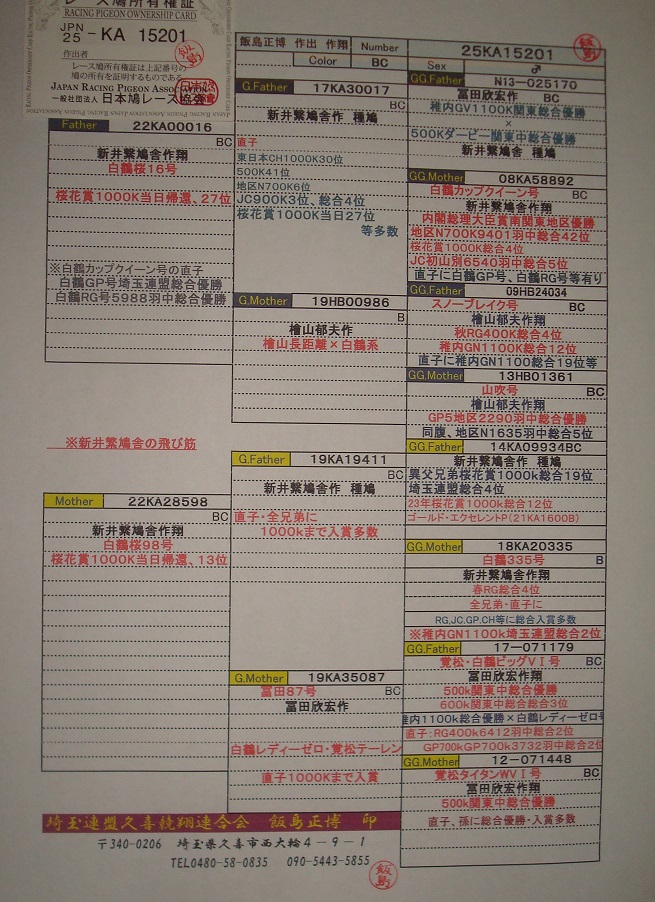 レース鳩所有権証
RACING PIGEON OWNERSHIP CARD
JPN
25 -KA 15201
作出者
レース鳩所有権証は上記番号の
鳩の所有を証明するものである
JAPAN RACING PIGEON ASSOCIATION
一般社団法人 日本鳩レース協会
飯島
飯島正博 作出 作翔 Number 25KA15201
Color BC Sex ♂
飯島
Father 22KA00016
BC
新井繋鳩舎作翔
白鶴桜16号
桜花賞1000K当日帰還、27位
※白鶴カップクイーン号の直子
白鶴GP号埼玉連盟総合優勝
白鶴RG号5988羽中総合優勝
※新井繋鳩舎の飛び筋
Mother 22KA28598
BC
新井繋鳩舎作翔
白鶴桜98号
桜花賞1000K当日帰還、13位
G.Father 17KA30017
BC
新井繋鳩舎 種鳩
直子
東日本CH1000K30位
500K41位
地区N700K6位
JC900K3位、総合4位
桜花賞1000K当日27位
等多数
G.Mother 19HB00986
B
檜山郁夫作
檜山長距離×白鶴系
G.Father 19KA19411
BC
新井繋鳩舎 種鳩
直子・全兄弟に
1000kまで入賞多数
G.Mother 19KA35087
冨田87号 BC
冨田欣宏作
白鶴レディーゼロ・覚松テーレン
直子1000Kまで入賞
GG.Father N13-025170
冨田欣宏作 BC
稚内GV1100K関東総合優勝
×
500Kダービー関東中総合優勝
新井繋鳩舎 種鳩
GG.Mother 08KA58892
白鶴カップクイーン号 BC
新井繋鳩舎作翔
内閣総理大臣賞南関東地区優勝
地区N700K9401羽中総合42位
桜花賞1000K総合4位
JC初山別6540羽中総合5位
直子に白鶴GP号、白鶴RG号等有り
GG.Father 09HB24034
スノーブレイク号 BC
檜山郁夫作翔
秋RG400K総合4位
稚内GN1100K総合12位
直子に稚内GN1100総合19位等
GG.Mother 13HB01361
山吹号 BC
檜山郁夫作翔
GP5地区2290羽中総合優勝
同腹、地区N1635羽中総合5位
GG.Father 14KA09934BC
新井繋鳩舎 種鳩
異父兄弟桜花賞1000k総合19位
埼玉連盟総合4位
23年桜花賞1000k総合12位
ゴールド・エクセレントP(21KA1600B)
GG.Mother 18KA20335
白鶴335号 B
新井繋鳩舎作翔
春RG総合4位
全兄弟・直子に
RG,JC,GP,CH等に総合入賞多数
※稚内GN1100k埼玉連盟総合2位
GG.Father 17-071179
覚松・白鶴ビッグVⅠ号 BC
冨田欣宏作翔
500k関東中総合優勝
600k関東中総合総合3位
稚内1100k総合優勝×白鶴レディーゼロ号
直子:RG400k6412羽中総合2位
GP700kGP700k3732羽中総合2位
GG.Mother 12-071448
覚松タイタンWVⅠ号 BC
冨田欣宏作翔
500k関東中総合優勝
直子、孫に総合優勝・入賞多数
埼玉連盟久喜競翔連合会 飯島正博 印
〒340-0206 埼玉県久喜市西大輪4-9-1
TEL0480-58-0835 090-5443-5855
飯島